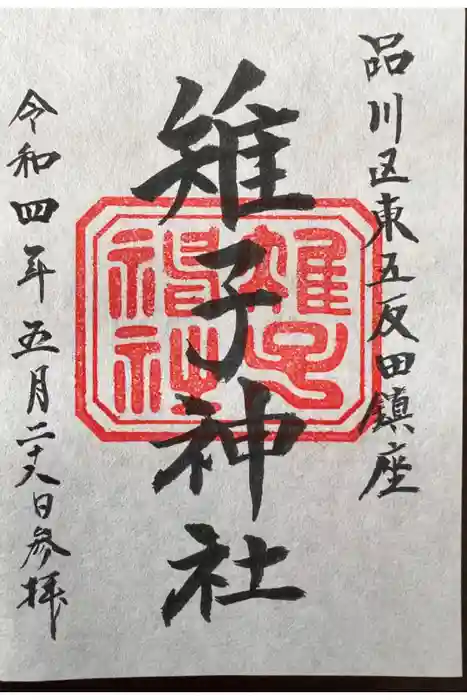 品川区東五反田鎮座
雉子神社
令和四年五月二十八日参拝
雉子神社